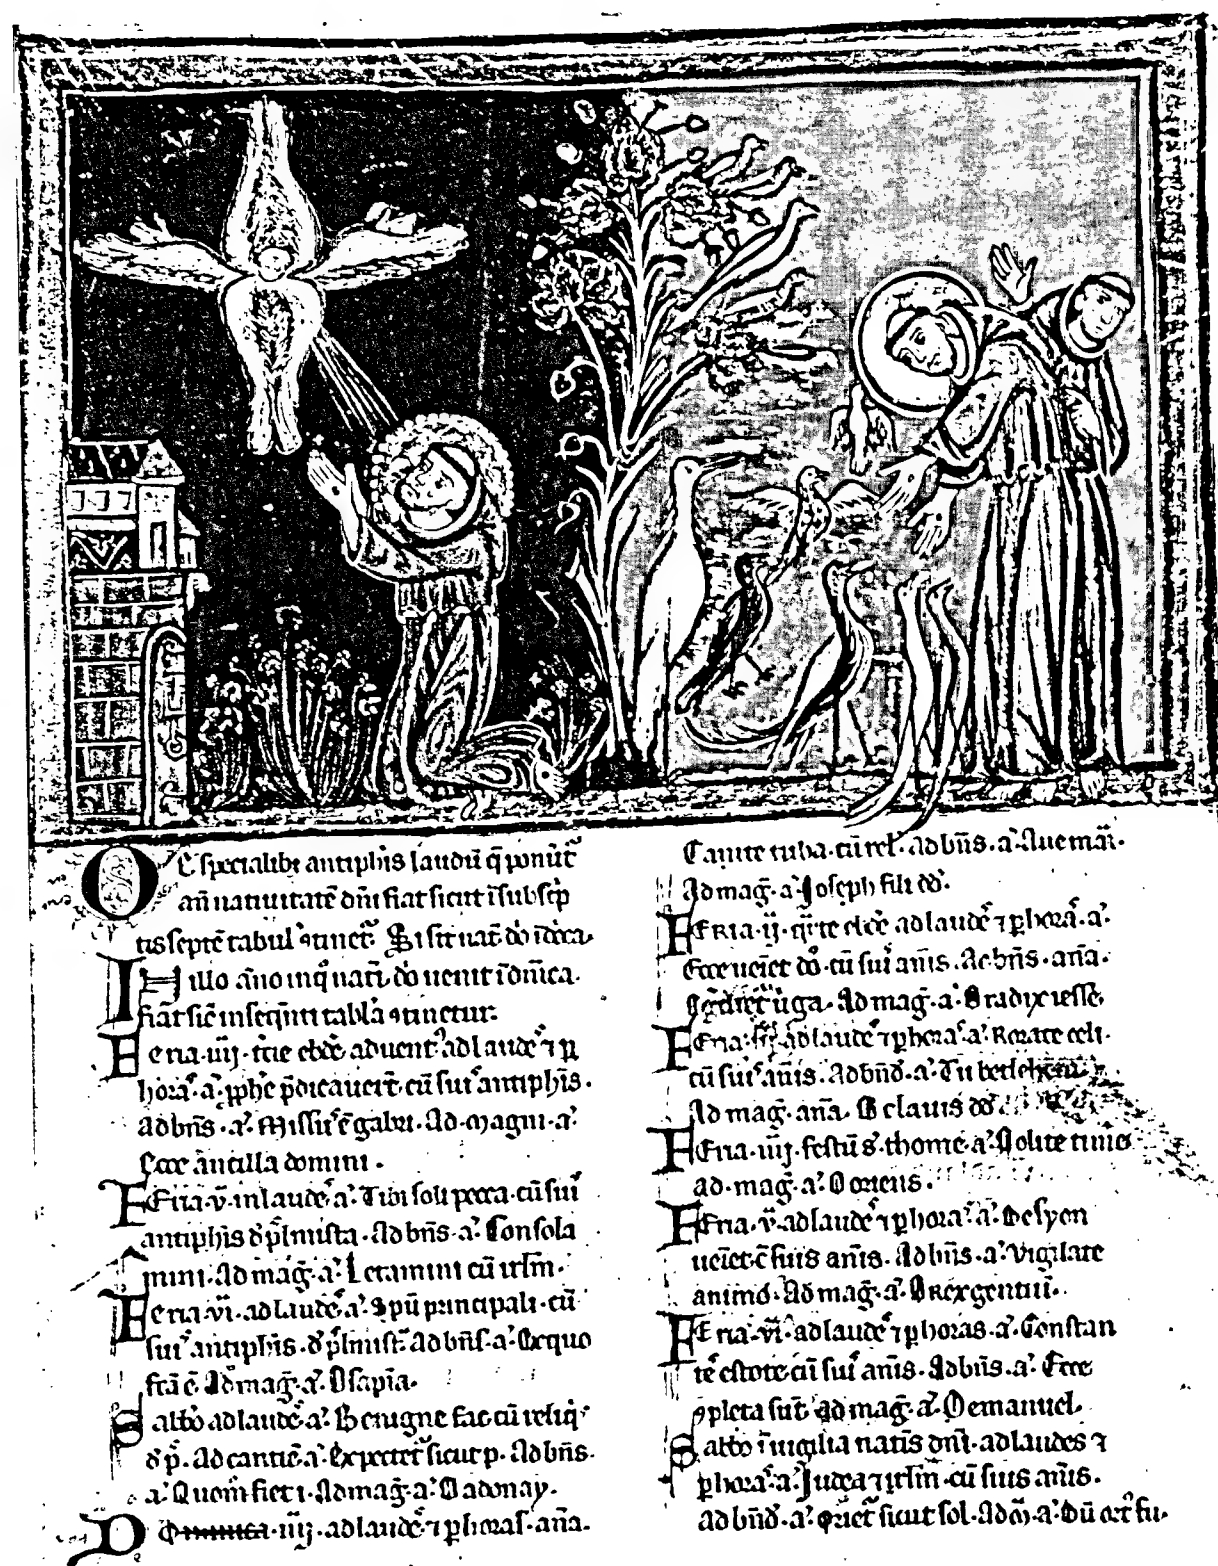 E specialibꝰ antiphis laudū q̄ ponūt᷑
añ natiuitatē dñi fiat sicut ī subscͥp
tis septē tabul
I
illo año inq̄ nat᷑
fiat sic̄ in seq̄nti tabla ꝯtinetur.
Feria·iiij· aduent᷑ ad laudē ⁊ ꝑ
hora᷒·a᷒· ꝓphē p̄dicauer̄t· cū sui᷒ antiphis·
ad bn̄s·a᷒· Missu᷒ ē gabri·Ad·magni·a᷒·
Ecce ancilla domini·
Feria·v·in laudē·a᷒·Tibi soli pecca·cū sui᷒
antiphis d̄ p̄lmista·Ad bn̄s·a᷒·Consola
mini·Ad mag̅·a᷒·Letamini cū irlm̄·
Feria·vi·ad laudē·a᷒·Spū principali·cū
sui᷒ antiphis·d̄ p̄lmist̄·Ad bn̄s·a᷒·Ex quo
fc̄a ē·Ad mag̅·a᷒·O sapīa·
Sabb̄o ad laudē·a᷒·Benigne fac cū reliq᷒
d̄ p̄·Ad canticē·a᷒·Expectet᷑ sicut p·Ad bn̄s·
a᷒·Quom̄ fiet i·Ad mag̅·a᷒·O adonay·
Dominica·iiij·ad laudē·⁊ ꝑ horas·añа·
Canite tuba·cū rel᷒·ad bn̄s·a᷒·Aue mar̄·
Ad mag̅·a᷒·Joseph fili dd̄·
Feria·ij· ad laudē᷒ ⁊ ꝑ hora᷒·a᷒·
Ecce ueīet dō·cū sui᷒ añis·Ad bn̄s·aña·
Egͥdiet᷑ uͥga·Ad mag̅·a᷒·O radix iesse
Feria·iij·ad laudē᷒ ⁊ ꝑ hora᷒·a᷒·Rorate celi·
cū sui᷒ añis·Ad bn̄d·a᷒·Tu betlehem
Ad mag̅·aña·O clauis dd̄
Feria·iiij·festū s᷒·thome·a᷒·Nolite time
ad·mag̅·a᷒·O oriens·
Feria·v·ad laudē᷒ ⁊ ꝑ hora᷒·a᷒·De syon
ueīet·c̄ suis añis·Ad bn̄s·a᷒·Vigilate
animo·Ad mag̅·a᷒·O rex gentiū·
Feria·vi·ad laudē᷒ ⁊ ꝑ horas·a᷒·Constan
tē estote·cū sui᷒ añis·Ad bn̄s·a᷒·Ecce
ꝯpleta sūt ad mag̅·a᷒·O emanuel·
Sabb̄o ī uigilia natis dn̄i·ad laudes ⁊
ꝑ hora᷒·a᷒·Judea ⁊ irlm̄·cū suis añis·
ad bn̄d·a᷒·Oriet᷑ sicut sol·Ad m̄·a᷒·Dū ort᷒ fu·